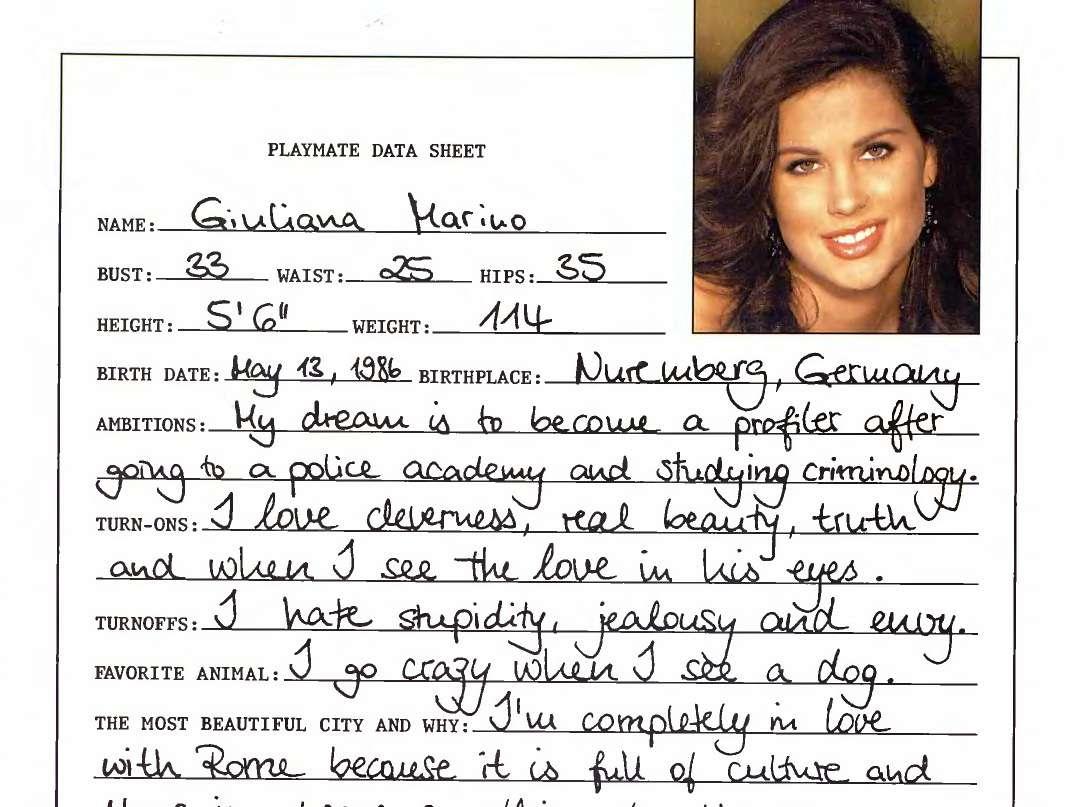 PLAYMATE DATA SHEET
NAME: Giuliana Marino
BUST: 33 WAIST: 25 HIPS: 35
HEIGHT: 5'6" WEIGHT: 114
BIRTH DATE: May 13, 1986 BIRTHPLACE: Nuremberg, Germany
AMBITIONS: My dream is to become a profiler after
going to a police academy and studying criminology.
TURN-ONS: I love cleverness, real beauty, truth
and when I see the love in his eyes.
TURNOFFS: I hate stupidity, jealousy and envy.
FAVORITE ANIMAL: I go crazy when I see a dog.
THE MOST BEAUTIFUL CITY AND WHY: I'm completely in love
with Rome because it is full of culture and